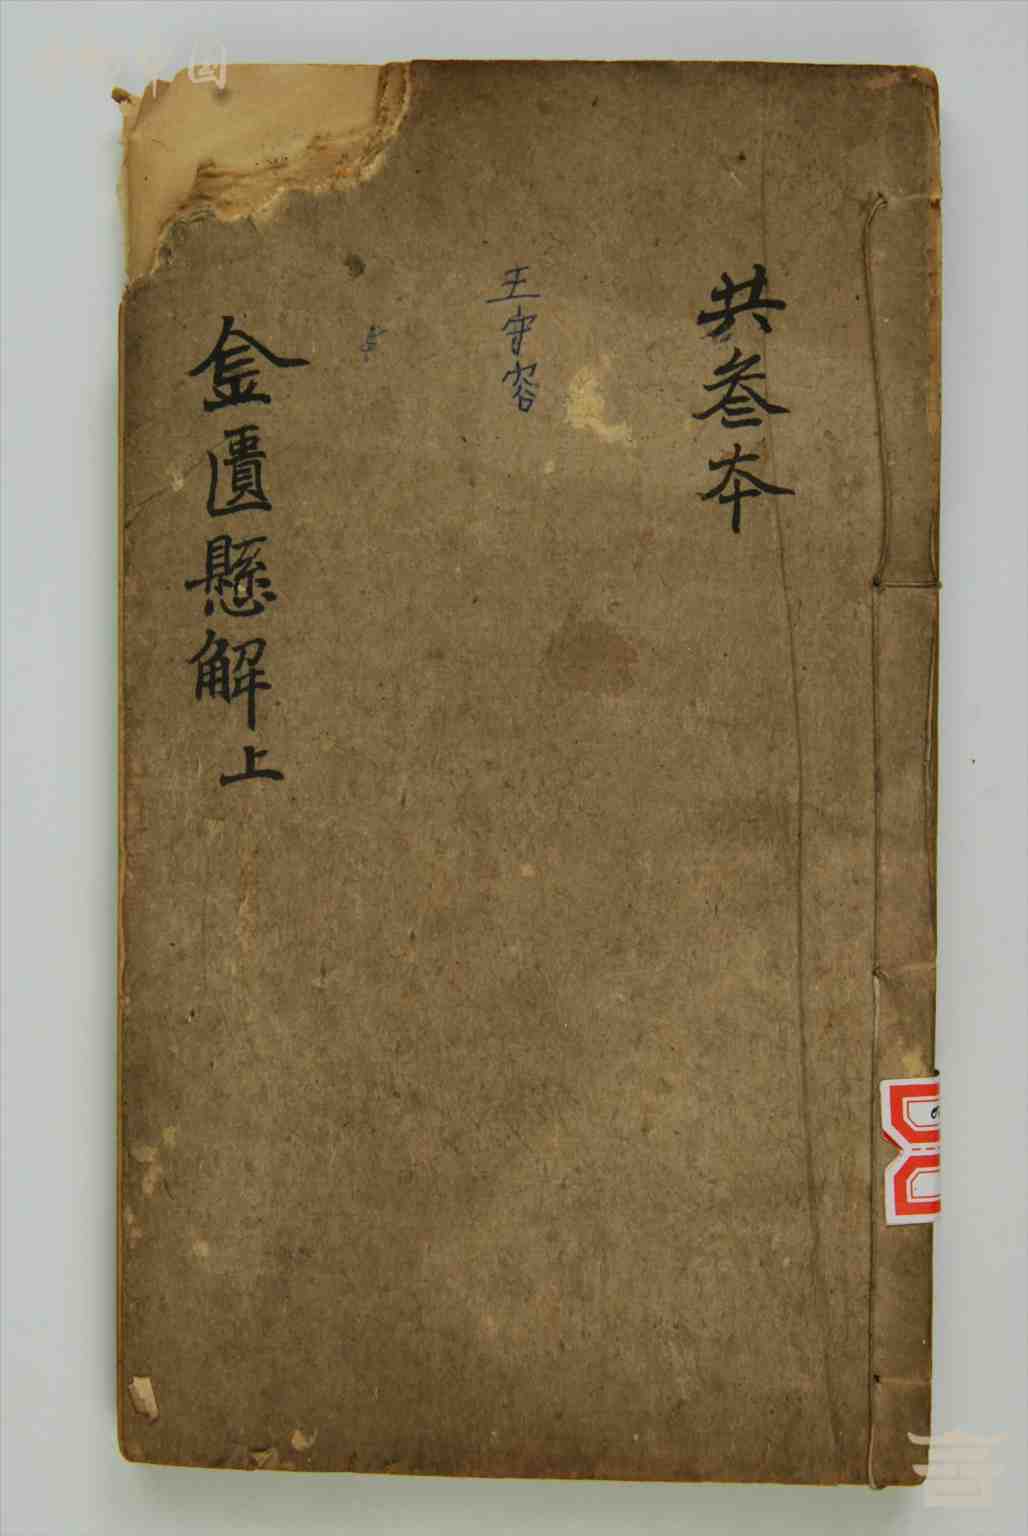 共叄本
王守容
金匱懸解上